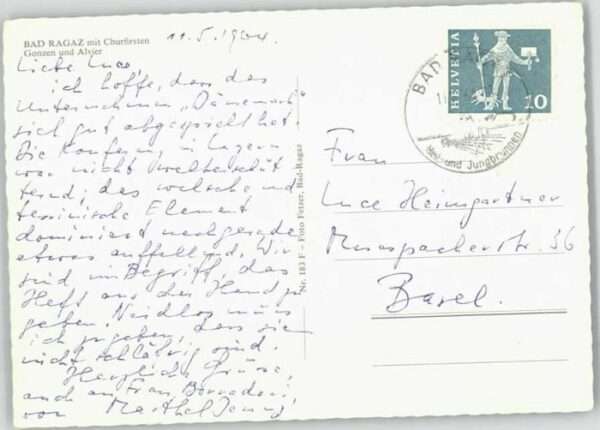 BAD RAGAZ mit Churfirsten
Gonzen und Alvier
11.5.1964.
Liebe Luce,
ich hoffe, dass das
Unternehmen „Dänemark"
sich gut abgespielt hat.
Die Konferenz in Luzern
war nicht welterschüt
ternd; das welsche und
tessinische Element
dominiert nachgerade
etwas auffallend. Wir
sind im Begriff, das
Heft aus der Hand zu
geben. Neidlos muss
ich zugeben, dass sie
nicht schläfrig sind.
Herzliche Grüsse,
auch an Frau
von Marthel Jenny,
Nr. 183 F - Foto Fetzer, Bad-Ragaz
HELVETIA
10
BAD RAGAZ
Heil- und Jungbrunnen
Frau
Luce Heimgartner
Murbacherstr. 36
Basel.